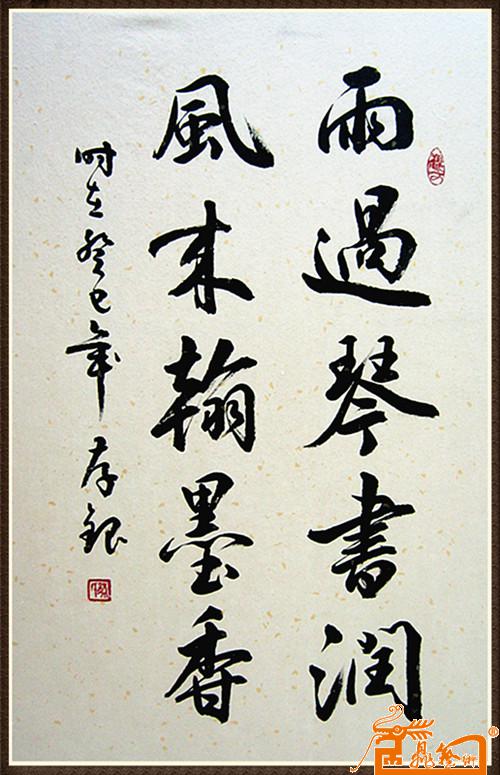 雨過琴書潤
風來翰墨香
时在癸巳年 存銀